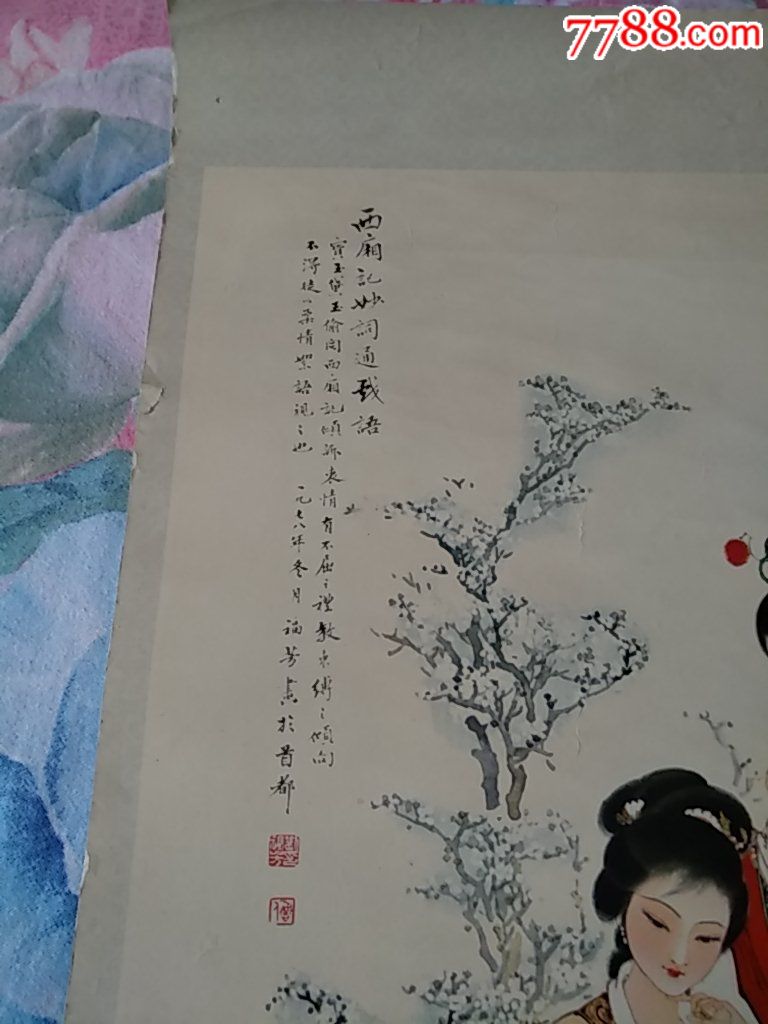 7788.com
西廂記妙詞通戲語
寶玉黛玉偷閱西廂記傾訴衷情有不屈之禮教束縛之傾向
不得從 柔情絮語視之也 一九七八年冬月 福芳畫於首都